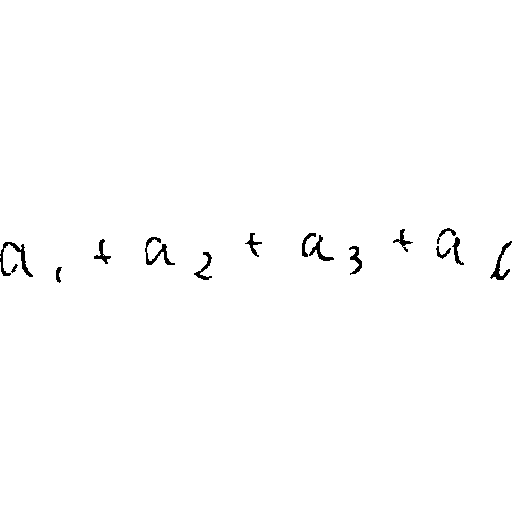 a₁ + a₂ + a₃ + a